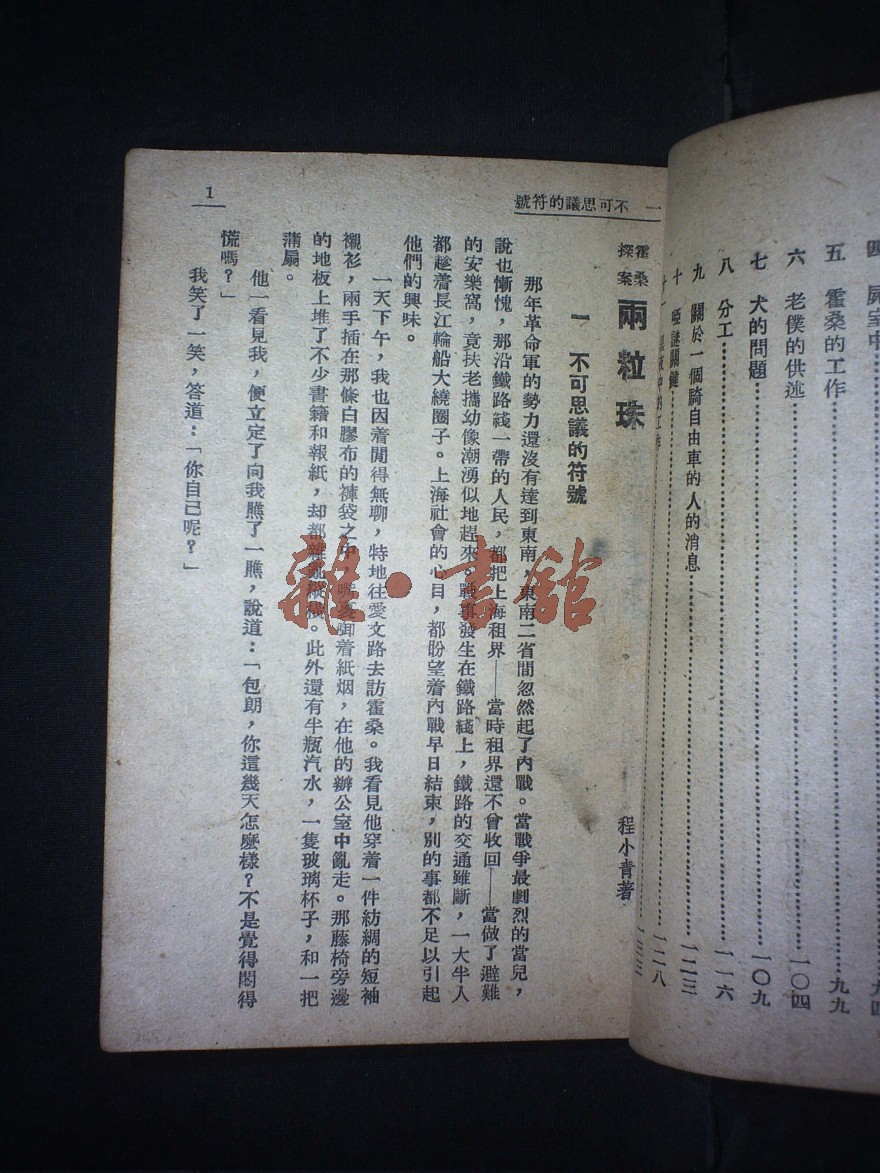 四　屍室中……九四
五　霍桑的工作……九九
六　老僕的供述……一〇四
七　犬的問題……一〇九
八　分工……一一六
九　關於一個騎自由車的人的消息……一二三
十　啞謎關鍵……一二八
十一　黑夜中的工作……一三三
一　不可思議的符號
1
霍桑探案　兩粒珠　程小青著
一　不可思議的符號
那年革命軍的勢力還沒有達到東南，東南二省間忽然起了內戰。當戰爭最劇烈的當兒，
說也慚愧，那沿鐵路綫一帶的人民，都把上海租界——當時租界還不曾收回——當做了避難
的安樂窩，竟扶老攜幼像潮湧似地趕來。戰事發生在鐵路綫上，鐵路的交通雖斷，一大半人
都趁着長江輪船大繞圈子。上海社會的心目，都盼望着內戰早日結束，別的事都不足以引起
他們的興味。
一天下午，我也因着閒得無聊，特地往愛文路去訪霍桑。我看見他穿着一件紡綢的短袖
襯衫，兩手插在那條白膠布的褲袋之中，嘴裏啣着紙烟，在他的辦公室中亂走。那藤椅旁邊
的地板上堆了不少書籍和報紙，却都雜亂縱橫。此外還有半瓶汽水，一隻玻璃杯子，和一把
蒲扇。
他一看見我，便立定了向我瞧了一瞧，說道：「包朗，你這幾天怎麼樣？不是覺得悶得
慌嗎？」
我笑了一笑，答道：「你自己呢？」
雜·書館